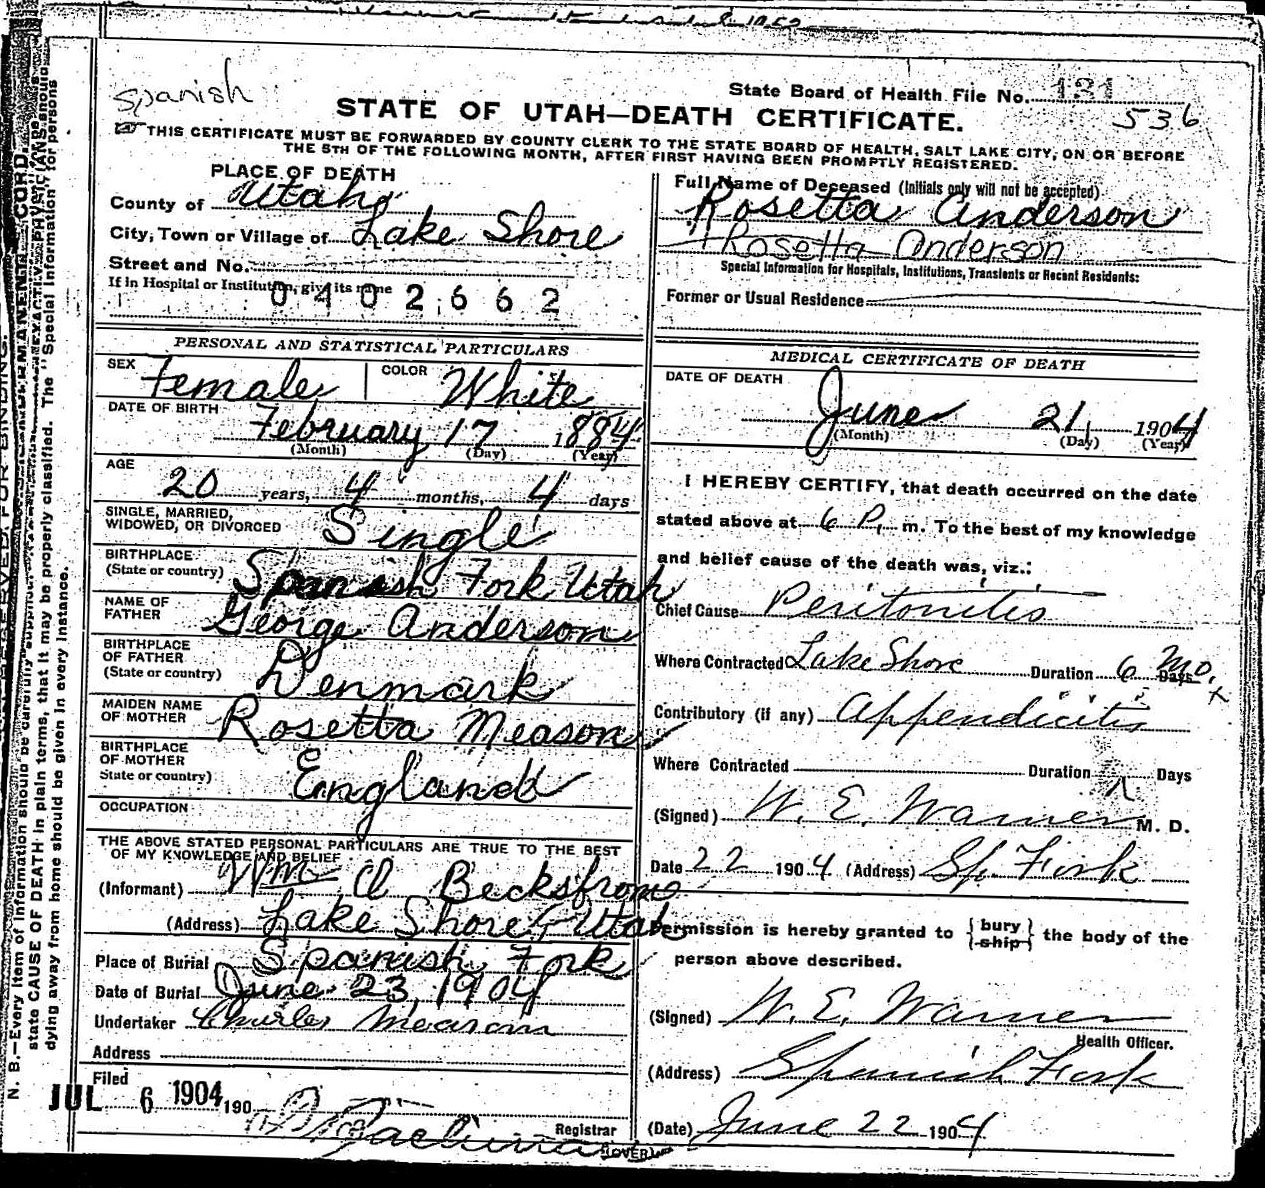 Spanish
State Board of Health File No. 131
536
STATE OF UTAH—DEATH CERTIFICATE.
THIS CERTIFICATE MUST BE FORWARDED BY COUNTY CLERK TO THE STATE BOARD OF HEALTH, SALT LAKE CITY, ON OR BEFORE
THE 5TH OF THE FOLLOWING MONTH, AFTER FIRST HAVING BEEN PROMPTLY REGISTERED.
PLACE OF DEATH
County of Utah
City, Town or Village of Lake Shore
Street and No.
If in Hospital or Institution, give its name
0402662
Full Name of Deceased (Initials only will not be accepted)
Rosetta Anderson
Rosetta Anderson
Special Information for Hospitals, Institutions, Transients or Recent Residents:
Former or Usual Residence
PERSONAL AND STATISTICAL PARTICULARS
SEX Female COLOR White
DATE OF BIRTH February 17 1884
(Month) (Day) (Year)
AGE
20 years, 4 months, 4 days
SINGLE, MARRIED,
WIDOWED, OR DIVORCED Single
BIRTHPLACE
(State or country) Spanish Fork Utah
NAME OF
FATHER George Anderson
BIRTHPLACE
OF FATHER
(State or country) Denmark
MAIDEN NAME
OF MOTHER Rosetta Meason
BIRTHPLACE
OF MOTHER
State or country) England
OCCUPATION
THE ABOVE STATED PERSONAL PARTICULARS ARE TRUE TO THE BEST
OF MY KNOWLEDGE AND BELIEF
(Informant) Wm O Beckstrom
(Address) Lake Shore Utah
Place of Burial Spanish Fork
Date of Burial June 23, 1904
Undertaker Charles Mearom
Address
Filed
JUL 6 1904 190
Registrar
(OVER)
MEDICAL CERTIFICATE OF DEATH
DATE OF DEATH
June 21 1904
(Month) (Day) (Year)
I HEREBY CERTIFY, that death occurred on the date
stated above at 6 P. m. To the best of my knowledge
and belief cause of the death was, viz.:
Chief Cause Peritonitis
Where Contracted Lake Shore Duration 6 Mo. Days
Contributory (if any) Appendicitis
Where Contracted Duration Days
(Signed) W. E. Warner M. D.
Date 22 1904 (Address) Sp. Fork
Permission is hereby granted to {bury ship} the body of the
person above described.
(Signed) W. E. Warner
Health Officer.
(Address) Spanish Fork
(Date) June 22 1904
N. B.—Every item of information should be carefully supplied.
state CAUSE OF DEATH in plain terms, that it may be properly classified. The "Special Information" for persons
dying away from home should be given in every instance.